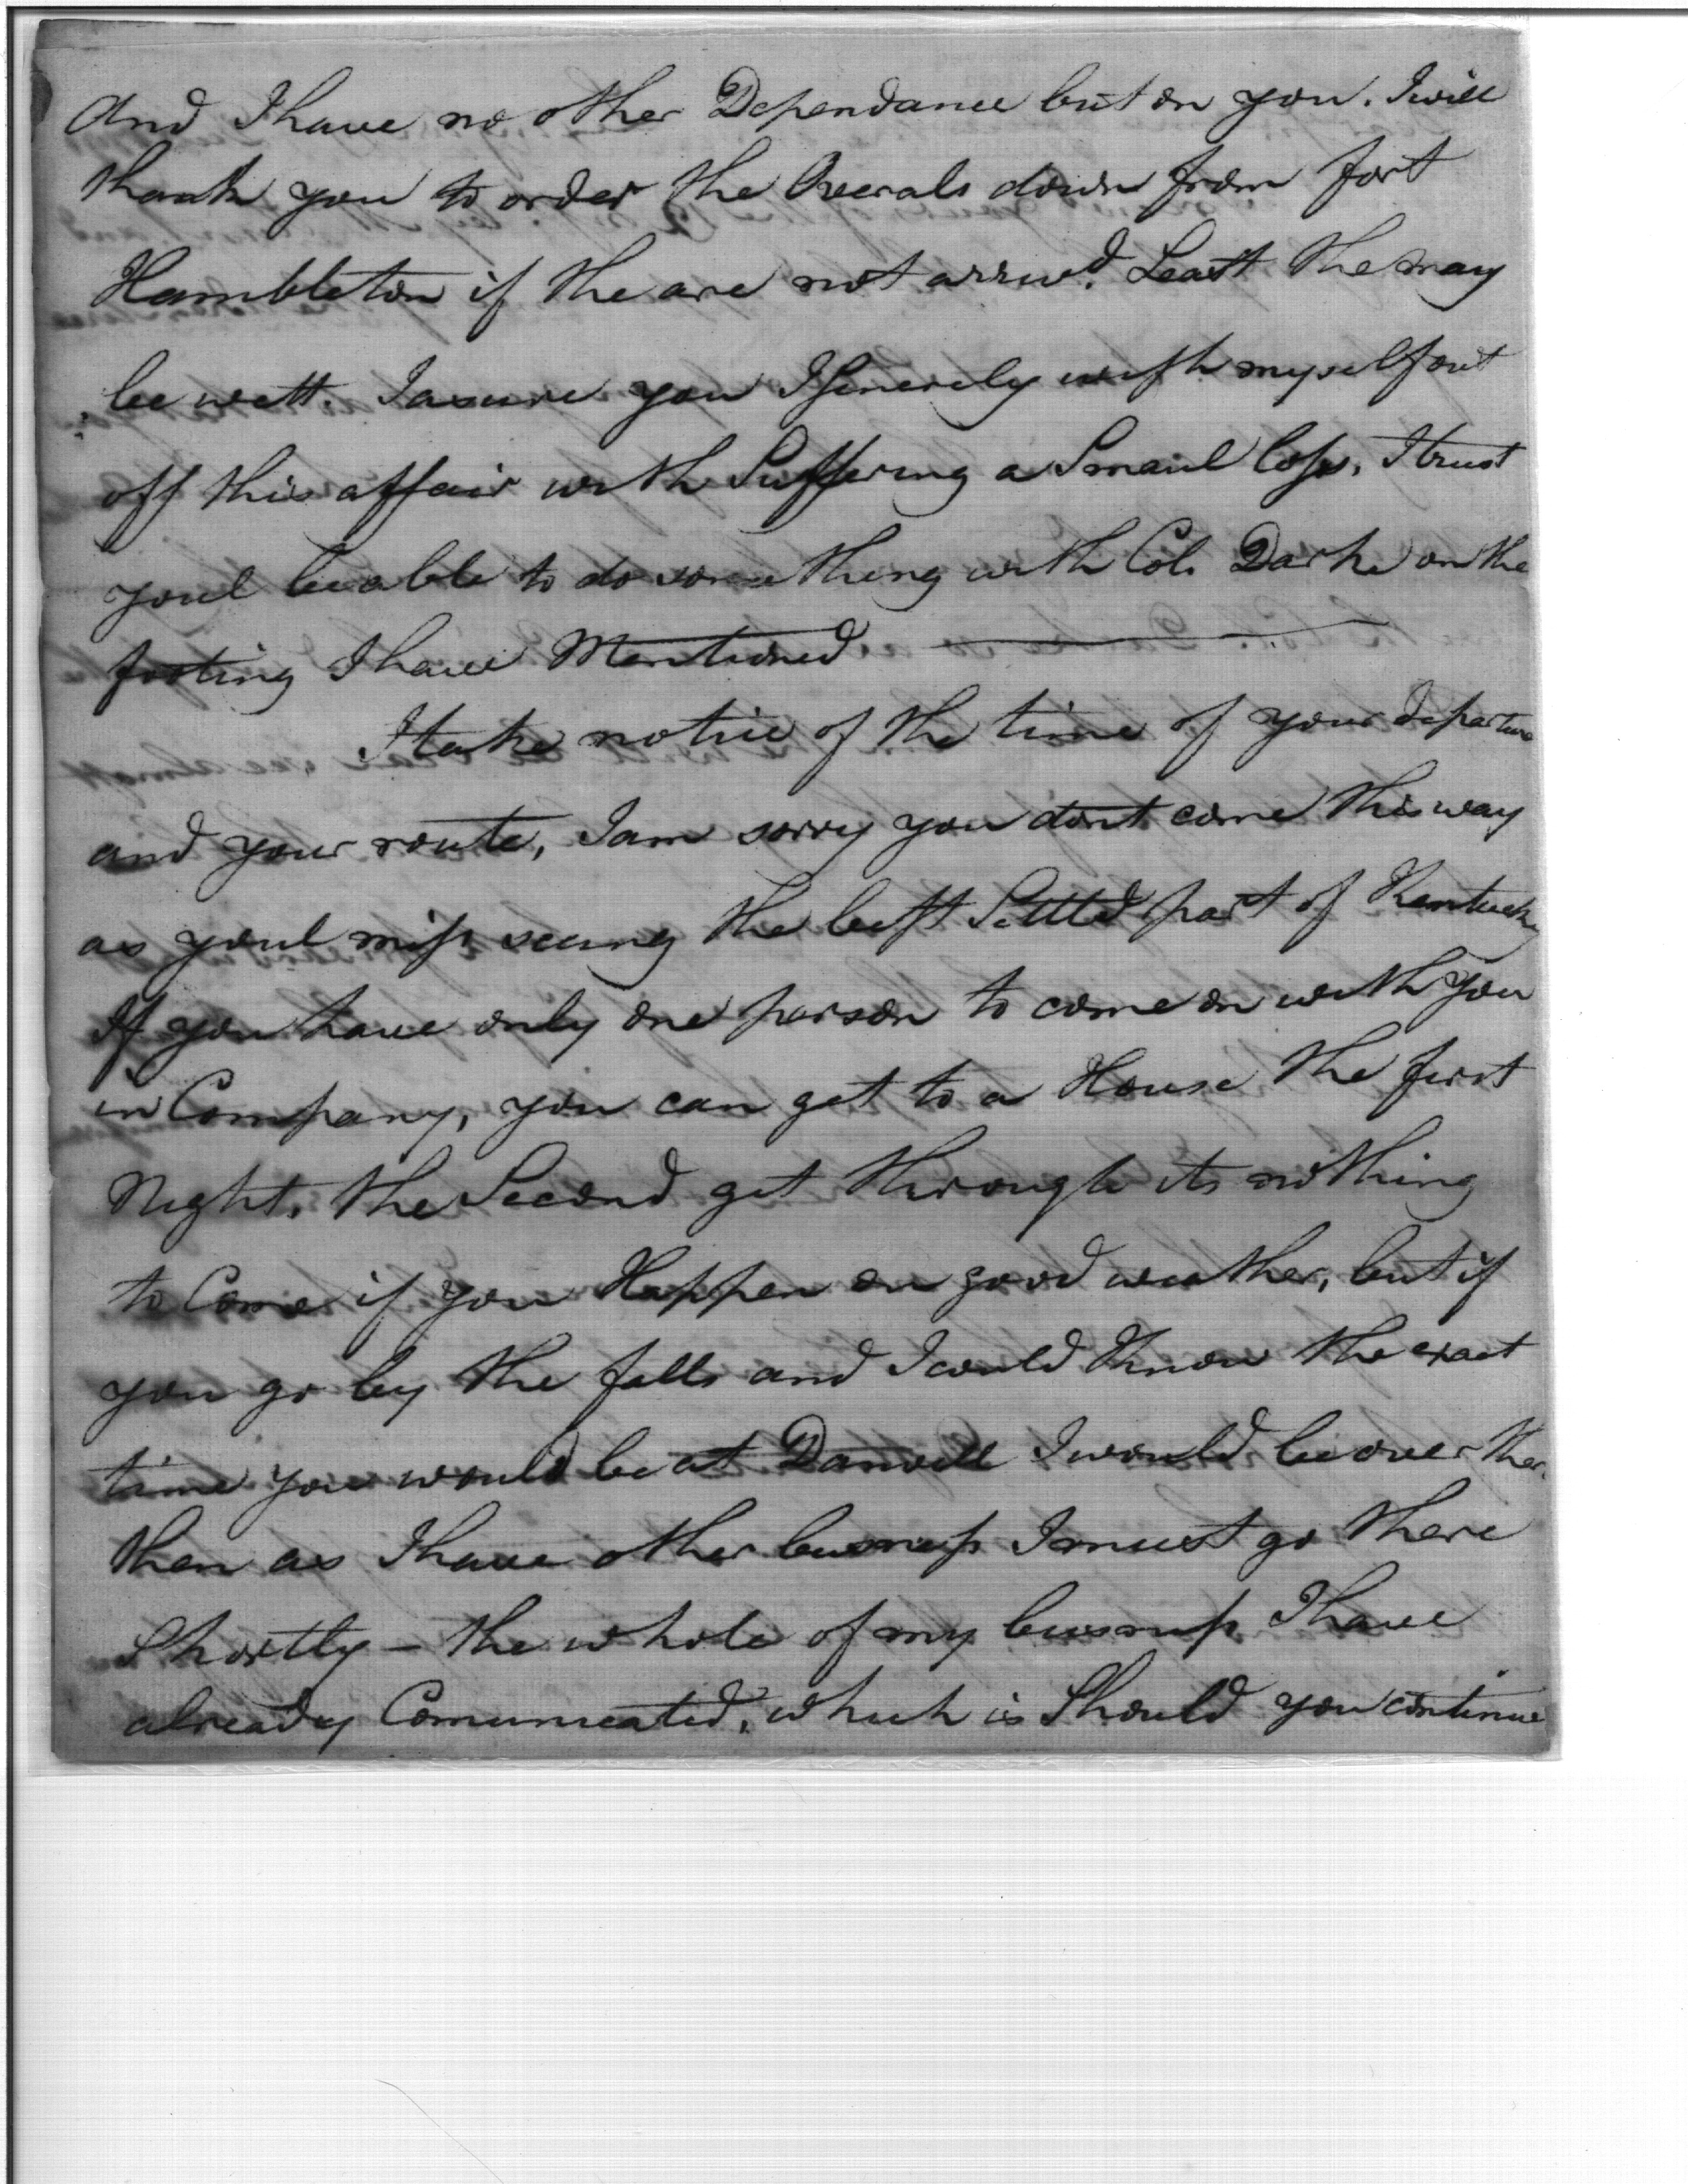 And I have no other Dependance but on you. I will
thank you to order the Overals down from fort
Hambleton if the are not arrived. Least the may
be wett. I asure you I Sincerely wish myself out
off this affair with Suffering a Small loss, I trust
youl be able to do something with Col. Darke on the
footing I have Mentioned
I take notice of the time of your departure
and your route, I am sorry you dont come this way
as youl miss seeing the best Settled part of Kentucky
If you have only one person to come on with you
in Company, you can get to a House the first
Night, the Second get through its nothing
to Come if you Happen on good weather, but if
you go by the falls and I could Know the exact
time you would be at Danvill I would be over ther
then as I have other busness I must go there
Shortly - the whole of my busness I have
already Comunicated, which is Should you continue